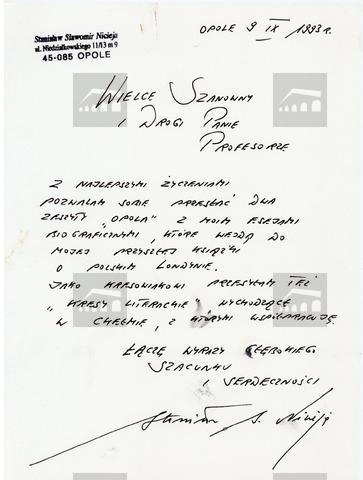 Stanisław Sławomir Nicieja
ul. Niedziałkowskiego 11/13 m 9
45-085 OPOLE
OPOLE 9 IX 1993 r.
WIELCE SZANOWNY
I DROGI PANIE
PROFESORZE
Z NAJLEPSZYMI ŻYCZENIAMI
POZWALAM SOBIE PRZESŁAĆ DWA
ZESZYTY „OPOLA" Z MOIMI ESEJAMI
BIOGRAFICZNYMI, KTÓRE WEJDĄ DO
MOJEJ PRZYSZŁEJ KSIĄŻKI
O POLSKIM LONDYNIE.
JAKO KRESOWIAKOWI PRZESYŁAM TEŻ
„KRESY LITERACKIE" WYCHODZĄCE
W CHEŁMIE, Z KTÓRYMI WSPÓŁPRACUJĘ.
ŁĄCZĘ WYRAZY GŁĘBOKIEGO
SZACUNKU
I SERDECZNOŚCI
Stanisław S. Nicieja